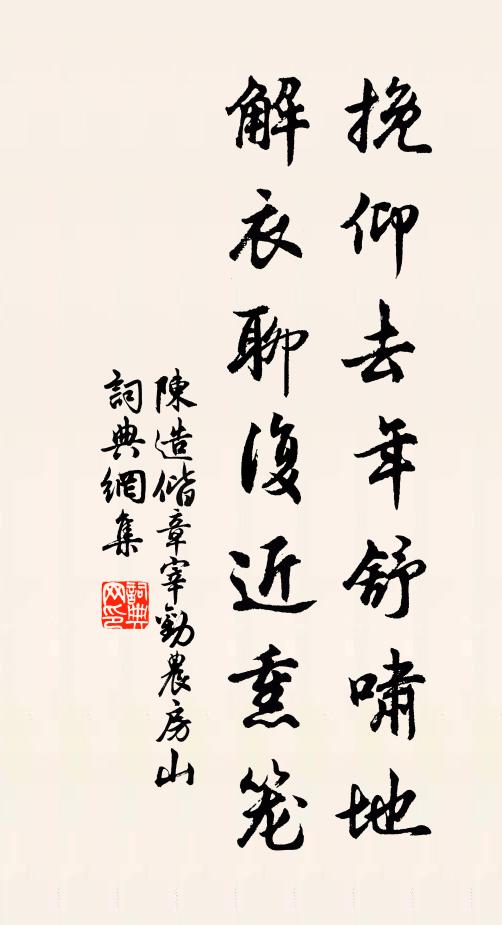 挽仰去年舒啸地
解衣聊復近熏笼
陳造偕章宰勸農房山
詞典網集
詞典网印